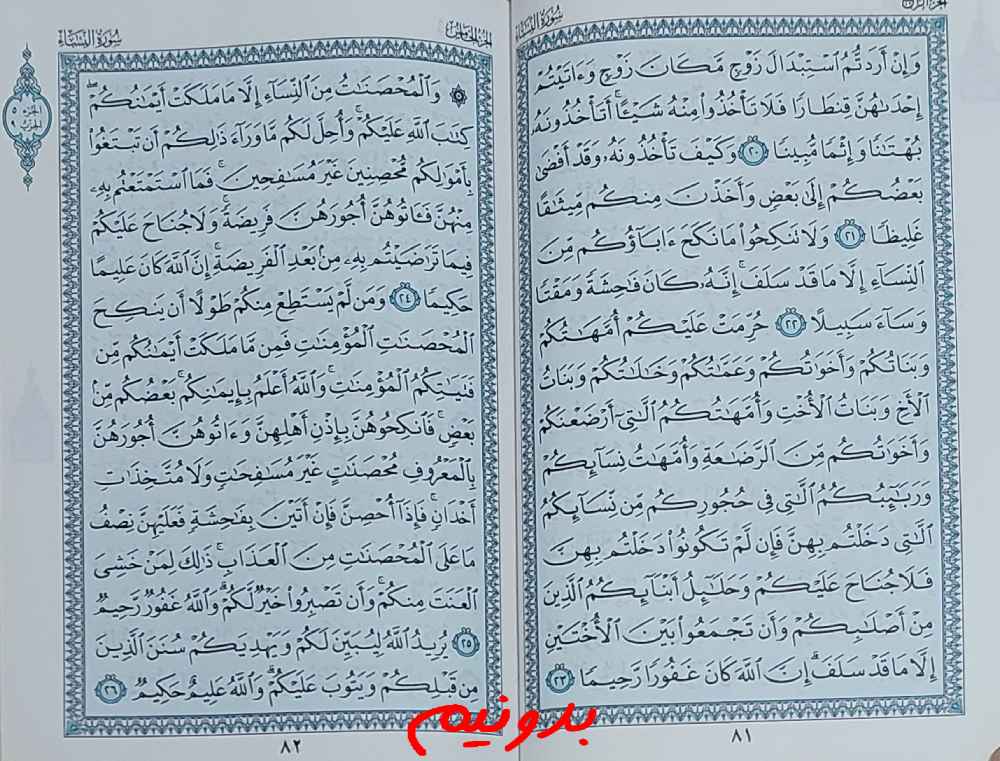 سورة النساء
وَإِنْ أَرَدتُّمُ ٱسْتِبْدَالَ زَوْجٍ مَّكَانَ زَوْجٍ وَءَاتَيْتُمْ
إِحْدَىٰهُنَّ قِنطَارًا فَلَا تَأْخُذُوا۟ مِنْهُ شَيْـًٔا ۚ أَتَأْخُذُونَهُۥ
بُهْتَـٰنًا وَإِثْمًا مُّبِينًا ٢٠ وَكَيْفَ تَأْخُذُونَهُۥ وَقَدْ أَفْضَىٰ
بَعْضُكُمْ إِلَىٰ بَعْضٍ وَأَخَذْنَ مِنكُم مِّيثَـٰقًا
غَلِيظًا ٢١ وَلَا تَنكِحُوا۟ مَا نَكَحَ ءَابَآؤُكُم مِّنَ
ٱلنِّسَآءِ إِلَّا مَا قَدْ سَلَفَ ۚ إِنَّهُۥ كَانَ فَـٰحِشَةً وَمَقْتًا
وَسَآءَ سَبِيلًا ٢٢ حُرِّمَتْ عَلَيْكُمْ أُمَّهَـٰتُكُمْ
وَبَنَاتُكُمْ وَأَخَوَٰتُكُمْ وَعَمَّـٰتُكُمْ وَخَـٰلَـٰتُكُمْ وَبَنَاتُ
ٱلْأَخِ وَبَنَاتُ ٱلْأُخْتِ وَأُمَّهَـٰتُكُمُ ٱلَّـٰتِىٓ أَرْضَعْنَكُمْ
وَأَخَوَٰتُكُم مِّنَ ٱلرَّضَـٰعَةِ وَأُمَّهَـٰتُ نِسَآئِكُمْ
وَرَبَـٰٓئِبُكُمُ ٱلَّـٰتِى فِى حُجُورِكُم مِّن نِّسَآئِكُمُ
ٱلَّـٰتِى دَخَلْتُم بِهِنَّ فَإِن لَّمْ تَكُونُوا۟ دَخَلْتُم بِهِنَّ
فَلَا جُنَاحَ عَلَيْكُمْ وَحَلَـٰٓئِلُ أَبْنَآئِكُمُ ٱلَّذِينَ
مِنْ أَصْلَـٰبِكُمْ وَأَن تَجْمَعُوا۟ بَيْنَ ٱلْأُخْتَيْنِ
إِلَّا مَا قَدْ سَلَفَ ۗ إِنَّ ٱللَّهَ كَانَ غَفُورًا رَّحِيمًا ٢٣
٨١
الجزء الخامس
سورة النساء
الجزء ٥
الحزب ٩
۞ وَٱلْمُحْصَنَـٰتُ مِنَ ٱلنِّسَآءِ إِلَّا مَا مَلَكَتْ أَيْمَـٰنُكُمْ ۖ
كِتَـٰبَ ٱللَّهِ عَلَيْكُمْ ۚ وَأُحِلَّ لَكُم مَّا وَرَآءَ ذَٰلِكُمْ أَن تَبْتَغُوا۟
بِأَمْوَٰلِكُم مُّحْصِنِينَ غَيْرَ مُسَـٰفِحِينَ ۚ فَمَا ٱسْتَمْتَعْتُم بِهِۦ
مِنْهُنَّ فَـَٔاتُوهُنَّ أُجُورَهُنَّ فَرِيضَةً ۚ وَلَا جُنَاحَ عَلَيْكُمْ
فِيمَا تَرَٰضَيْتُم بِهِۦ مِنۢ بَعْدِ ٱلْفَرِيضَةِ ۚ إِنَّ ٱللَّهَ كَانَ عَلِيمًا
حَكِيمًا ٢٤ وَمَن لَّمْ يَسْتَطِعْ مِنكُمْ طَوْلًا أَن يَنكِحَ
ٱلْمُحْصَنَـٰتِ ٱلْمُؤْمِنَـٰتِ فَمِن مَّا مَلَكَتْ أَيْمَـٰنُكُم مِّن
فَتَيَـٰتِكُمُ ٱلْمُؤْمِنَـٰتِ ۚ وَٱللَّهُ أَعْلَمُ بِإِيمَـٰنِكُم ۚ بَعْضُكُم مِّنۢ
بَعْضٍ ۚ فَٱنكِحُوهُنَّ بِإِذْنِ أَهْلِهِنَّ وَءَاتُوهُنَّ أُجُورَهُنَّ
بِٱلْمَعْرُوفِ مُحْصَنَـٰتٍ غَيْرَ مُسَـٰفِحَـٰتٍ وَلَا مُتَّخِذَٰتِ
أَخْدَانٍ ۚ فَإِذَآ أُحْصِنَّ فَإِنْ أَتَيْنَ بِفَـٰحِشَةٍ فَعَلَيْهِنَّ نِصْفُ
مَا عَلَى ٱلْمُحْصَنَـٰتِ مِنَ ٱلْعَذَابِ ۚ ذَٰلِكَ لِمَنْ خَشِىَ
ٱلْعَنَتَ مِنكُمْ ۚ وَأَن تَصْبِرُوا۟ خَيْرٌ لَّكُمْ ۗ وَٱللَّهُ غَفُورٌ رَّحِيمٌ
٢٥ يُرِيدُ ٱللَّهُ لِيُبَيِّنَ لَكُمْ وَيَهْدِيَكُمْ سُنَنَ ٱلَّذِينَ
مِن قَبْلِكُمْ وَيَتُوبَ عَلَيْكُمْ ۗ وَٱللَّهُ عَلِيمٌ حَكِيمٌ ٢٦
٨٢
بدونیم